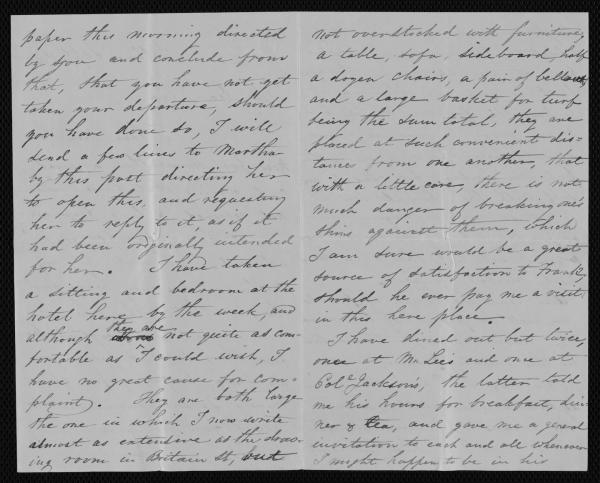 paper this morning directed
by you and conclude from
that, that you have not yet
taken your departure, should
you have done so, I will
send a few lines to Martha
by this post directing her
to open this, and requesting
her to reply to it, as if it
had been originally intended
for her. I have taken
a sitting and bedroom at the
hotel here by the week, and
although they are not quite as com-
fortable as I could wish, I
have no great cause for com-
plaint. They are both large
the one in which I now write
almost as extensive as the draw-
ing room in Britain St, but
not overstocked with furniture,
a table, sofa, sideboard, half
a dozen chairs, a pair of bellows,
and a large basket for turf
being the sum total, they are
placed at such convenient dis-
tances from one another, that
with a little care, there is not
much danger of breaking one's
shins against them, which
I am sure would be a great
source of satisfaction to Frank,
should he ever pay me a visit
in this here place.
I have dined out but twice,
once at Mr Lees and once at
Col. Jacksons, the latter told
me his hours for breakfast, din-
ner & tea, and gave me a general
invitation to each and all whenever
I might happen to be in his